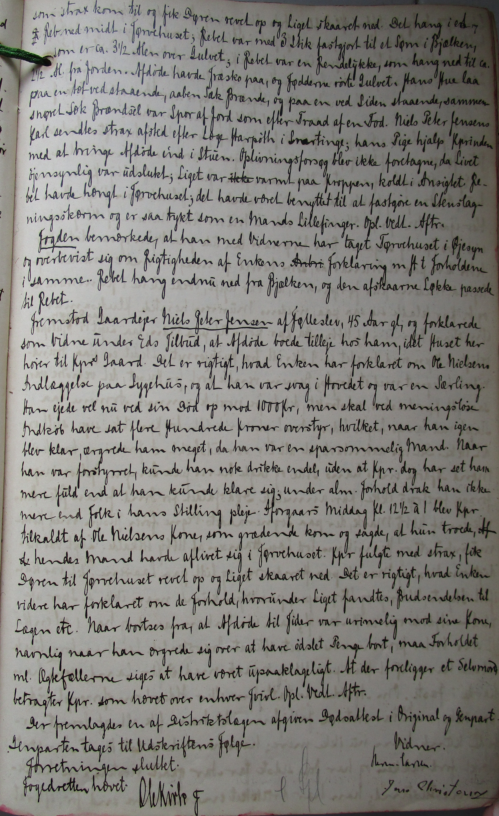 som strax kom til og fik Døren revet op og Liget skaaret ned. Det hang i et
Reb ned midt i Tørvehuset; Rebet var med 3 Stik fastgjort til et Søm i Bjælken,
som er ca. 3½ Alen over Gulvet; i Rebet var en Rendeløkke, som hang ned til ca.
Al. fra Jorden. Afdøde havde Træsko paa, og Fødderne rørte Gulvet. Hans Hue laa
paa en tæt ved staaende, aaben Sæk Brænde, og paa en ved Siden staaende, sammen-
snøret Sæk Brændsel var Spor af Jord som efter Traad af en Fod. Niels Peter Jensens
Karl sendtes strax afsted efter Læge Harpøth i Snertinge; hans Pige hjalp Kprinden
med at bringe Afdøde ind i Stuen. Oplivningsforsøg blev ikke foretagne, da Livet
øjensynlig var udslukt; Liget var varmt paa Kroppen, koldt i Ansigtet. Re-
bet havde hængt i Tørvehuset; det havde været benyttet til at fastgøre en Stenslag-
ningsskærm og er saa tykt som en Mands Lillefinger. Opl. Vedt. Aftr.
Fogden bemærkede, at han med Vidnerne har taget Tørvehuset i Øjesyn
og overbevist sig om Rigtigheden af Enkens Forklaring m H t Forholdene
i samme. Rebet hang endnu ned fra Bjælken, og den afskaarne Løkke passede
til Rebet.
Fremstod Gaardejer Niels Peter Jensen af Jølleslev, 45 Aar gl, og forklarede
som Vidne under Eds Tilbud, at Afdøde boede tilleje hos ham, idet Huset her
hører til Kprs Gaard. Det er rigtigt, hvad Enken har forklaret om Ole Nielsens
Indlæggelse paa Sygehus, og at han var svag i Hovedet og var en Særling.
Han ejede vel nu ved sin Død op mod 1000 Kr, men skal ved meningsløse
Indkøb have sat flere Hundrede Kroner overstyr, hvilket, naar han igen
blev klar, ærgrede ham meget, da han var en sparsommelig Mand. Naar
han var forstyrret, kunde han nok drikke endel, uden at Kpr. dog har set ham
mere fuld end at han kunde klare sig; under alm. Forhold drak han ikke
mere end Folk i hans Stilling plejr. Iforgaars Middag Kl. 12½ à 1 blev Kpr.
tilkaldt af Ole Nielsens Kone, som grædende kom og sagde, at hun troede,
hendes Mand havde aflivet sig i Tørvehuset. Kpr fulgte med strax, fik
Døren til Tørvehuset revet op og Liget skaaret ned. Det er rigtigt, hvad Enken
videre har forklaret om de Forhold, hvorunder Liget fandtes, Budsendelsen til
Lægen etc. Naar bortses fra, at Afdøde til Tider var urimelig mod sine Kone,
navnlig naar han ærgrede sig over at have ødslet Penge bort, maa Forholdet
ml. Ægtefællerne siges at have været upaaklageligt. At der foreligger et Selvmord
betragter Kpr. som hævet over enhver Tvivl. Opl. Vedt. Aftr.
Der fremlagdes en af Distriktslægen afgiven Dødsattest i Original og Genpart.
Genparten tages til Udskriftens Følge.
Vidner.
Forretningen sluttet.
Fogedretten hævet.